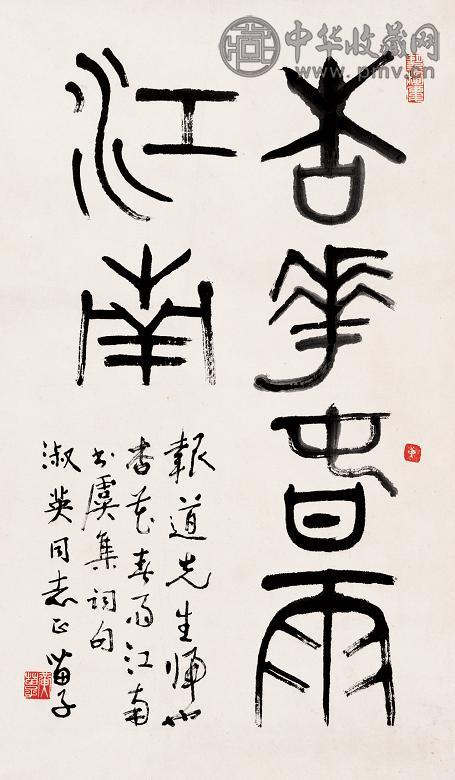 中华收藏网
www.pmv.cn
杏花春雨
江南
報道先生歸也
杏花春雨江南
書虞集詞句
淑英同志正 苗子